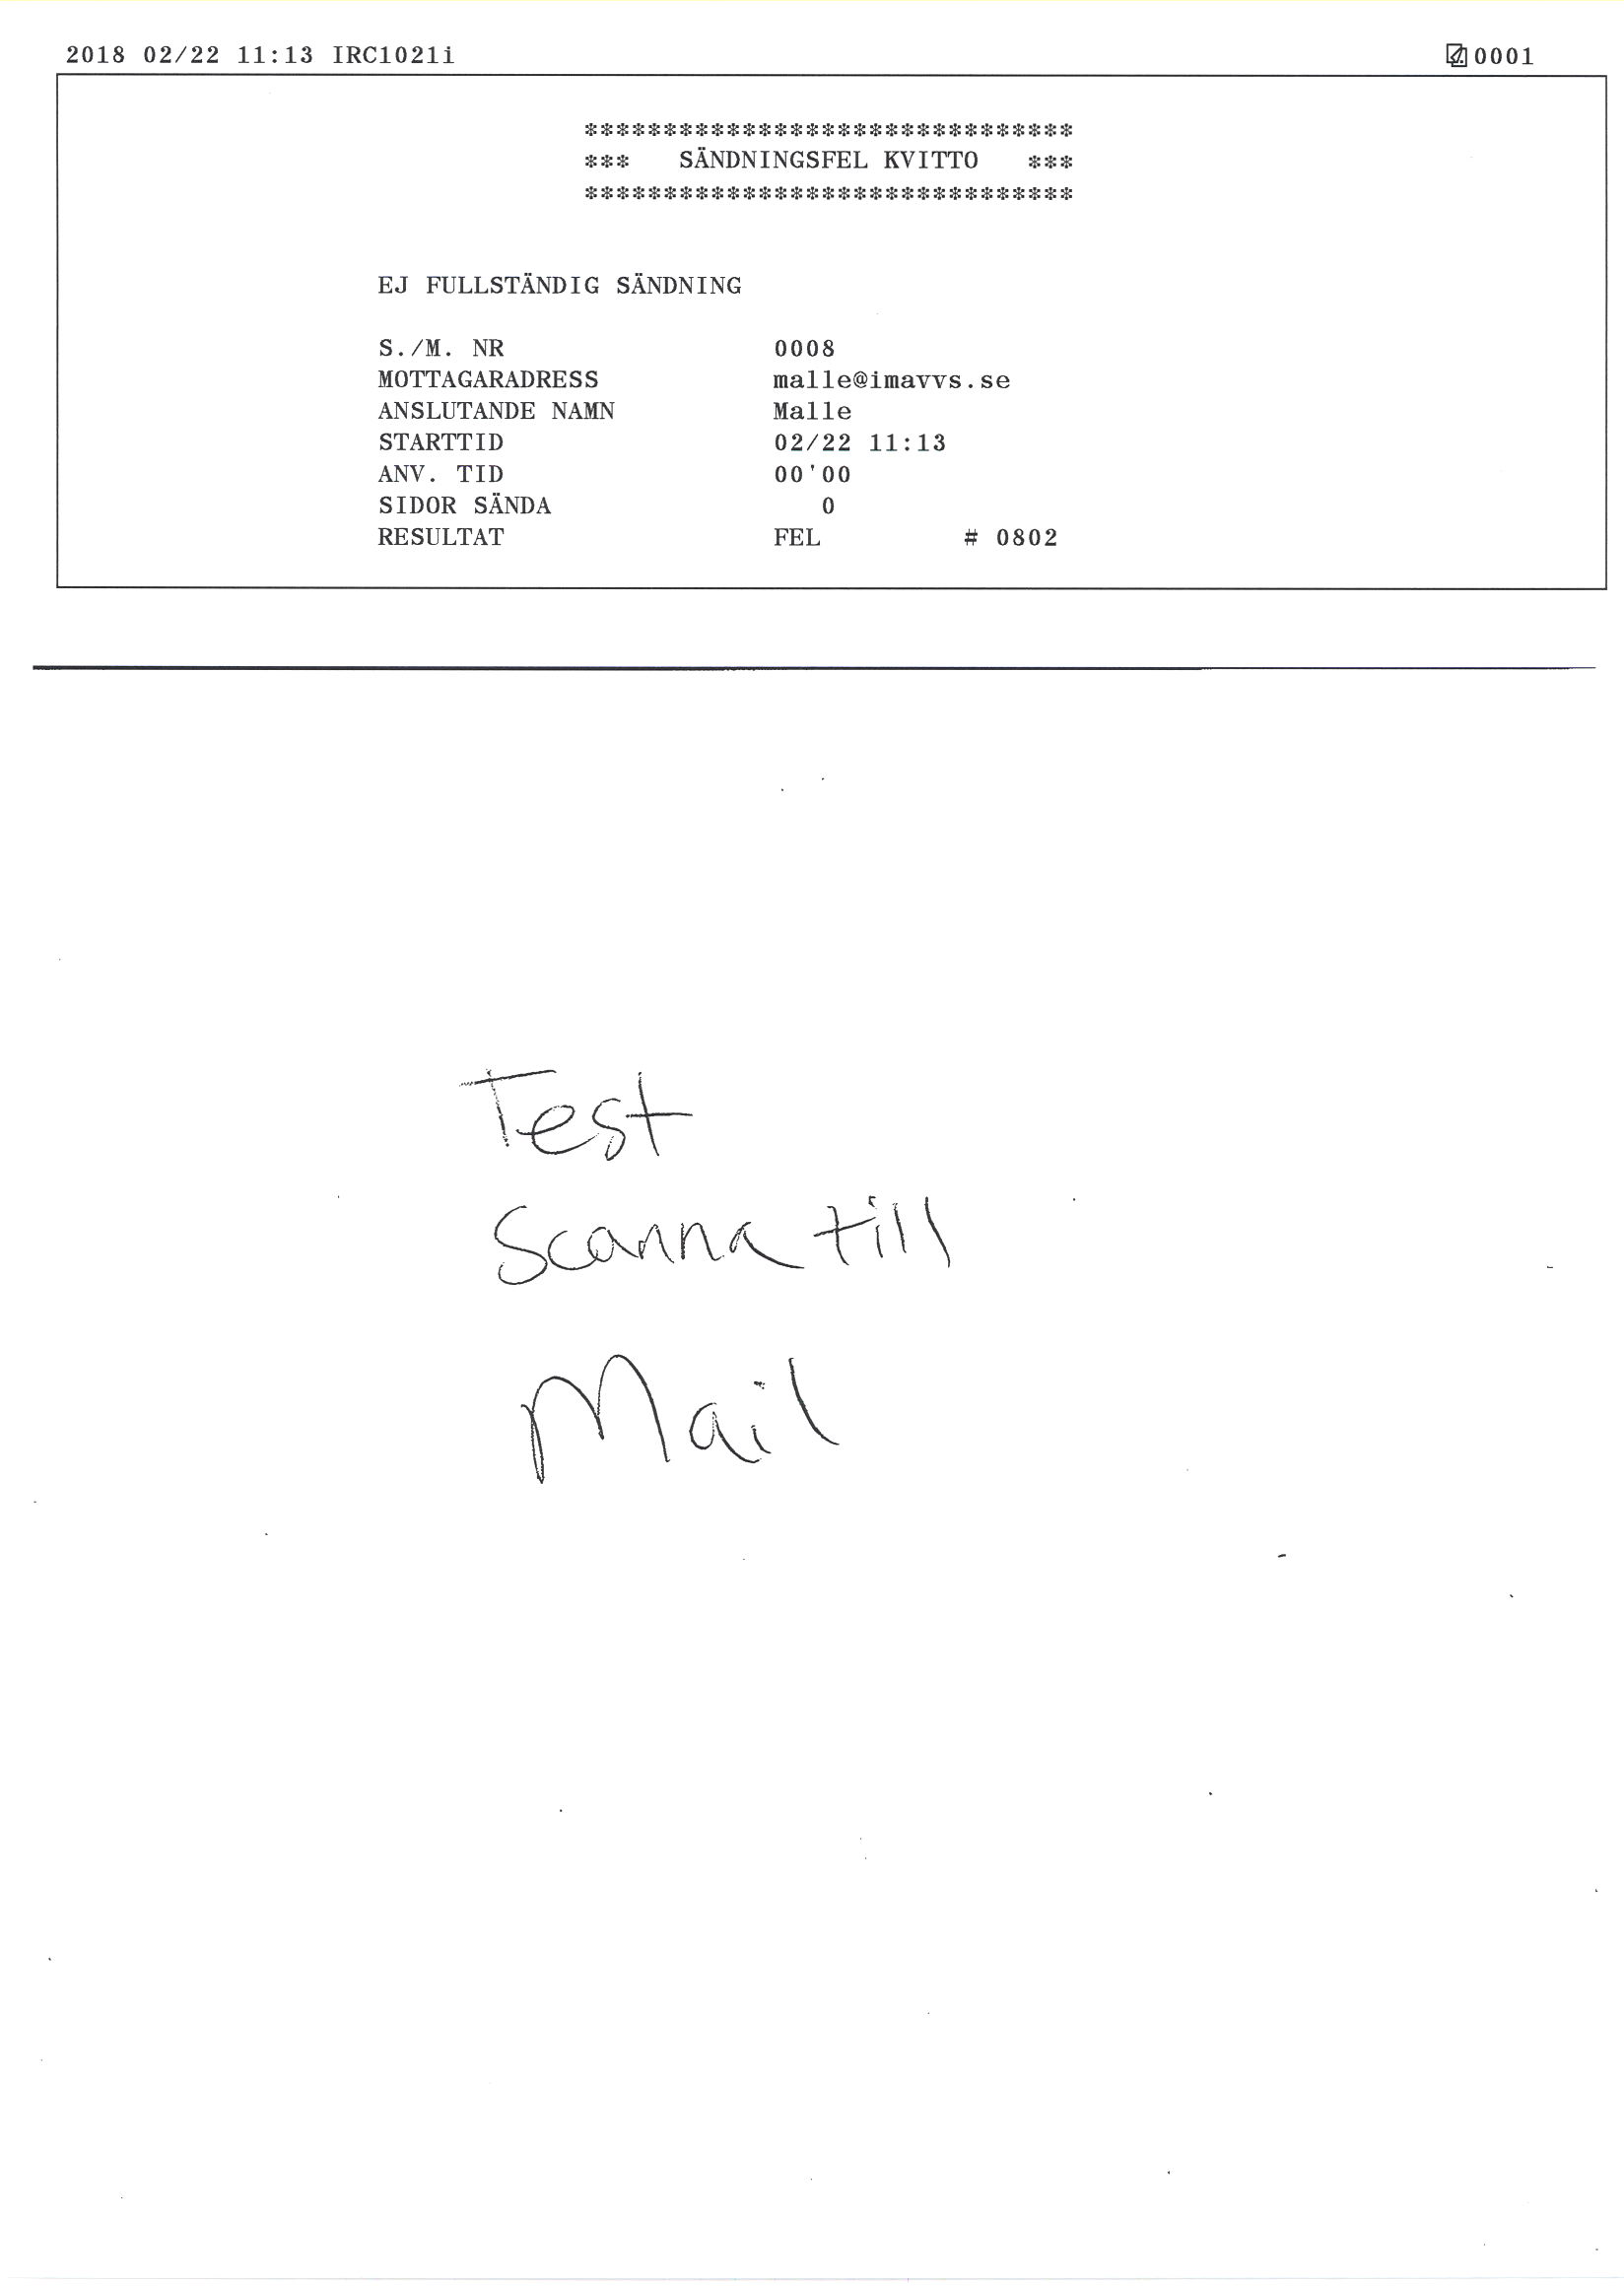 2018 02/22 11:13 IRC1021i 0001
*******************************
*** SÄNDNINGSFEL KVITTO ***
*******************************
EJ FULLSTÄNDIG SÄNDNING
S./M. NR 0008
MOTTAGARADRESS malle@imavvs.se
ANSLUTANDE NAMN Malle
STARTTID 02/22 11:13
ANV. TID 00'00
SIDOR SÄNDA 0
RESULTAT FEL # 0802
Test
Scanna till
Mail